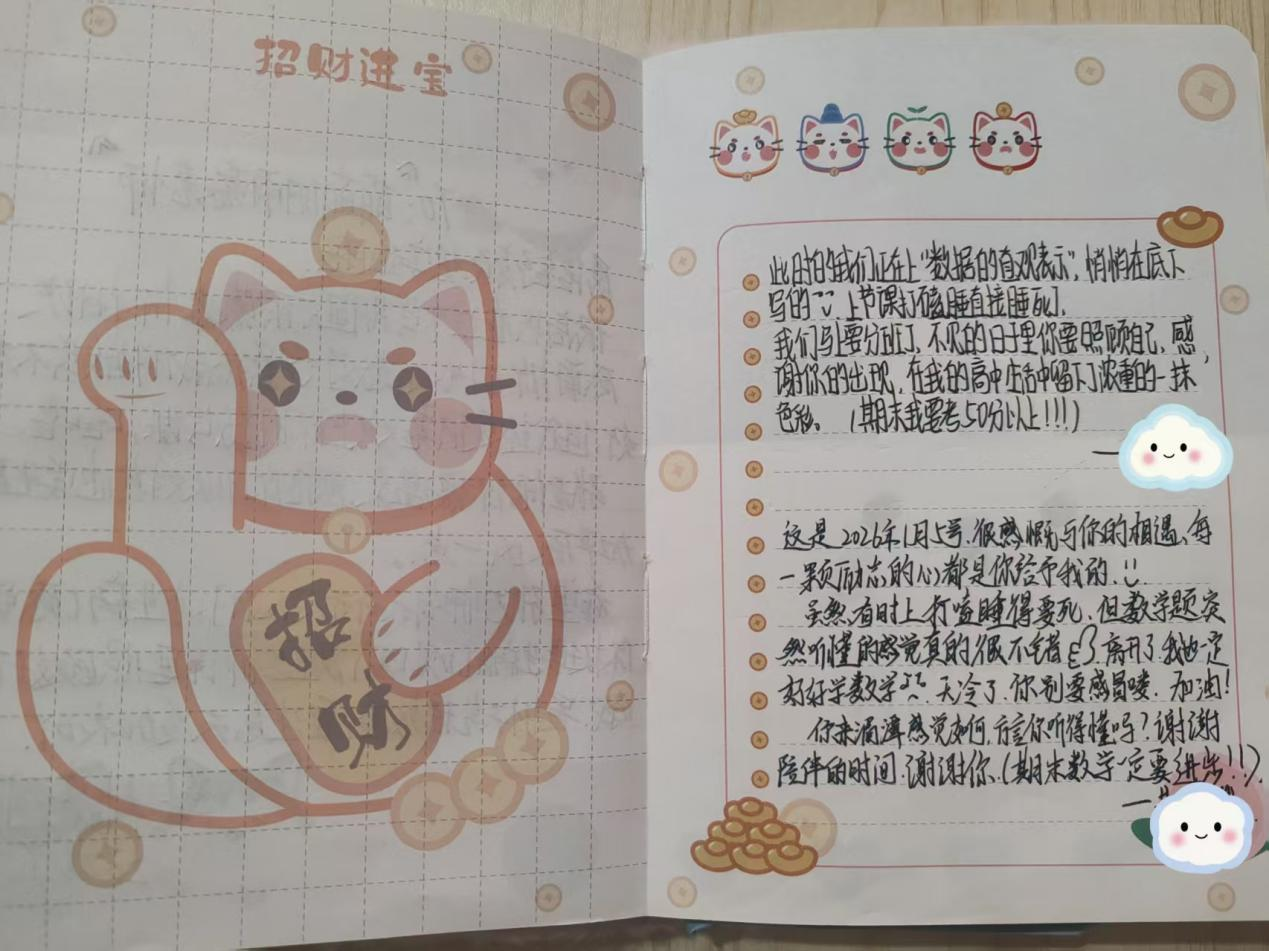 招财进宝
招
财
此时的我们正在上“数据的直观表示”，悄悄在底下
写的 上节课打瞌睡直接睡死了。
我们马上要分班了，不见的日子里你要照顾自己，感
谢你的出现，在我的高中生活中留下了浓重的一抹
色彩。（期末我要考50分以上!!!）
这是2026年1月5号，很感慨与你的相遇、每
一颗励志的心都是你给予我的.
虽然有时上打瞌睡得要死，但数学题突
然听懂的感觉真的很不错 离开了我也一定
好好学数学 天冷了，你别要感冒喽. 加油!
你来湄潭感觉如何，方言你听得懂吗?谢谢
陪伴的时间.谢谢你.(期末数学一定要进步!!)